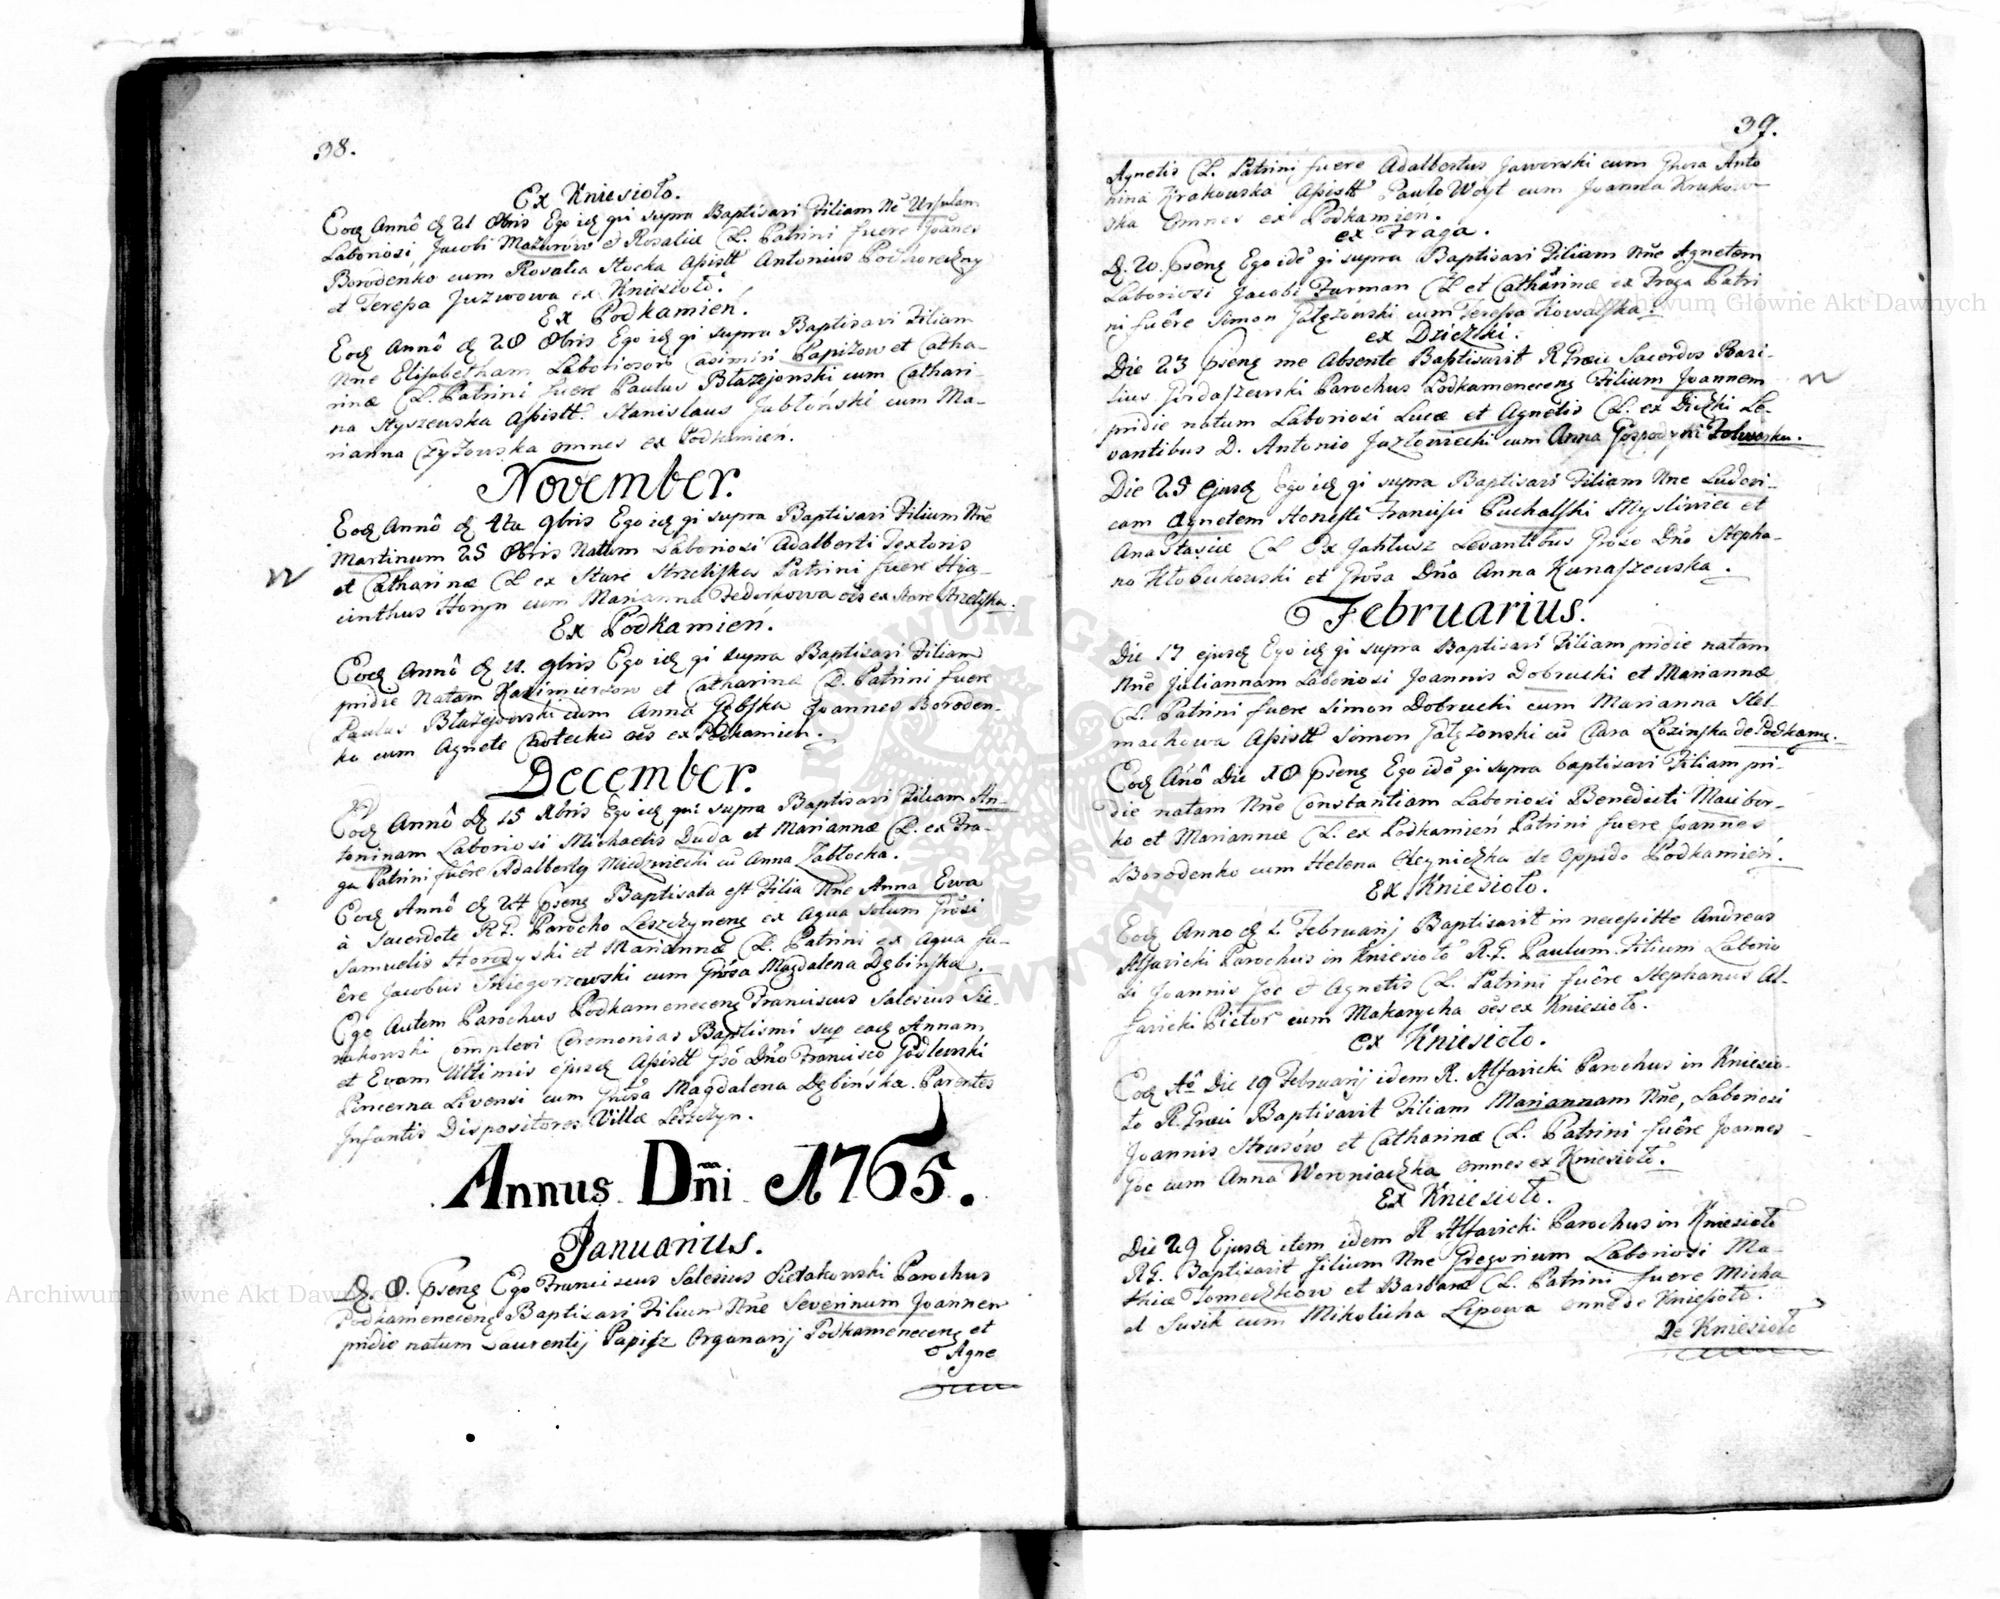 38.
Ex Kniesioło.
Eodẽ Annô dẽ 21 8bris Ego idẽ qi supra Baptisavi Filiam Nẽ Ursulam
Laboriosi Jacobi Mazurów et Rosaliæ C.L. Patrini fuere Joañes
Borodenko cum Rosalia Stocka Assisttt Antonius Podhoreczny
et Teressa Juzwowa ex Kniesioło.
Ex Podkamień.
Eodẽ Annô dẽ 28 8bris Ego idẽ qi supra Baptisavi Filiam
Nne Elisabetham Laboriosor Casimiri Papizow et Catha-
rinæ C.L. Patrini fuere Paulus Błazejonski cum Cathari-
na Styszewska Assistt. Stanislaus Jabłoński cum Ma-
rianna Czyżowska omnes ex Podkamień.
November.
Eodẽ Annô dẽ 4ta 9bris Ego idẽ qi supra Baptisavi Filium Nnẽ
Martinum 25 8bris Natum Laboriosi Adalberti Textoris
et Catharinæ C.L. ex Stare Strzeliska Patrini fuere Hia-
cinthus Horyn cum Marianna Fedorkowa oẽs ex Stare Strzeliska.
Ex Podkamień.
Eodẽ Annô dẽ 21. 9bris Ego idẽ qi supra Baptisavi Filiam
pridie Natam Kazimierzow et Catharinæ C.L. Patrini fuere
Paulus Błazejowski cum Anna Gębska Joannes Boroden-
ko cum Agnete Chotecka oẽs ex Podkamień.
December.
Eodẽ Annô Dẽ 15 Xbris Ego idẽ qui supra Baptisavi Filiam An-
toninam Laboriosi Michaelis Duda et Mariannæ C.L. ex Fra-
ga Patrini fuêre Adalbertg Niedzwiecki cũ Anna Zabłocka.
Eodẽ Annô dẽ 24 p̃senẽ Baptisata est Filia Nñe Anna Ewa
à Sacerdote R.G. Parocho Leszczynenẽ ex aqua solum Grõsi
Samuelis Horczyski et Mariannæ C.L. Patrini ex Aqua fu-
êre Jacobus Sniegorzewski cum Grõsa Magdalena Dębinska.
Ego Autem Parochus Podkamenecenẽ Franciscus Salesius Sie-
rakowski Complevi Ceremonias Baptismi sup eadẽ Annam
et Evam Ultimis ejusdẽ Assistt Gsõ Dñõ Francisco Godlewski
Pincerna Livensi cum Gñrsã Magdalena Dębińska. Parentes
Infantis Dispositores Villæ Leszczyn.
Annus Dñi 1765.
Januarius.
D. 8. p̃senẽ Ego Franciscus Salesius Sierakowski Parochus
Podkamenecenẽ Baptisavi Filium Nñe Severinum Joannem
pridie natum Laurentij Papisz Organarij Podkamenecenẽ et
Agne
39.
Agnetis C.L. Patrini fuere Adalbertus Jaworski cum Gñrsa Anto
nina Krakowska Assistt Paulo Woyt cum Joanna Krukow-
ska Omnes ex Podkamień.
ex Fraga.
D. 20. p̃senẽ Ego idẽ qi supra Baptisavi Filiam Nñe Agnetem
Laboriosi Jacobi Furman C.L. et Catharinæ ex Fraga Patri
ni fuêre Simon Gałęzowski cum Teressa Kowalska.
ex Dziczki.
Die 23 p̃senẽ me Absente Baptisavit R. Græci Sacerdos Basi-
lius Gordaszewski Parochus Podkamenecenẽ Filium Joannem
pridie natum Laboriosi Lucæ et Agnetis C.L. ex Diczki Le-
vantibus D. Antonio Jazłowiecki cum Anna Gospodyni Folwarku.
Die 25 ejusdẽ Ego idẽ qi supra Baptisavi Filiam Nñe Ludovi-
cam Agnetem Honesti Francisci Puchalski Mysliwiec et
Anastasiæ C.L. Ex Jahłusz Levantibus Grõso Dñõ Stepha-
no Kłobukowski et Grõsa Dña Anna Kunaszewska.
Februarius.
Die 17 ejusdẽ Ego idẽ qi supra Baptisavi Filiam pridie natam
Nñe Juliannam Laboriosi Joannis Dobrucki et Mariannæ
C.L. Patrini fuere Simon Dobrucki cum Marianna Stel
machowa Assistt Simon Gałęzonski cũ Clara Lozinska de Podkamẽ.
Eodẽ Añõ Die 18 p̃senẽ Ego idẽ qi supra baptisavi Filiam pri-
die natam Nñe Constantiam Laboriosi Benedicti Maxibor-
ko et Mariannæ C.L. ex Podkamień Patrini fuere Joannes
Borodenko cum Helena Oleyniczka de Oppido Podkamień.
Ex Kniesioło.
Eodẽ Anno dẽ 2 Februarij Baptisavit in necessitte Andreas
Alfavicki Parochus in Kniesioło R.G. Paulum Filium Laborio
si Joannis Goc et Agnetis C.L. Patrini fuêre Stephanus Al-
favicki Pictor cum Makarycha oẽs ex Kniesioło.
ex Kniesioło.
Eodẽ Aõ Die 19 Februarij idem R. Alfavicki Parochus in Kniesio-
ło R. Græci Baptisavit Filiam Mariannam Nñe, Laboriosi
Joannis Strusów et Catharinæ C.L. Patrini fuêre Joannes
Goc cum Anna Woroniaczka omnes ex Kniesioło.
Ex Kniesioło.
Die 29 Ejusdẽ item idem R Alfavicki Parochus in Kniesioło
R.G. Baptisavit filium Nñe Gregorium Laboriosi Ma-
thiæ Tomeczkow et Barbaræ C.L. Patrini fuere Micha
el Susik cum Mikolicha Lipowa omnes de Kniesioło.
De Kniesioło
Archiwum Główne Akt Dawnych
Archiwum Główne Akt Dawnych